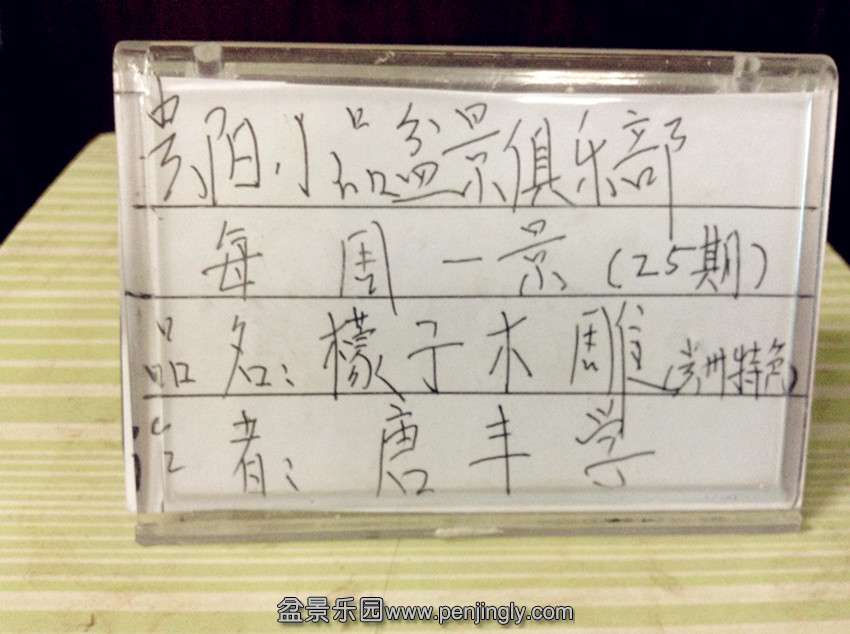 贵阳小品盆景俱乐部
每周一景(25期)
品名:檬子木雕(贵州特色)
者:唐丰学
盆景乐园www.penjingly.com